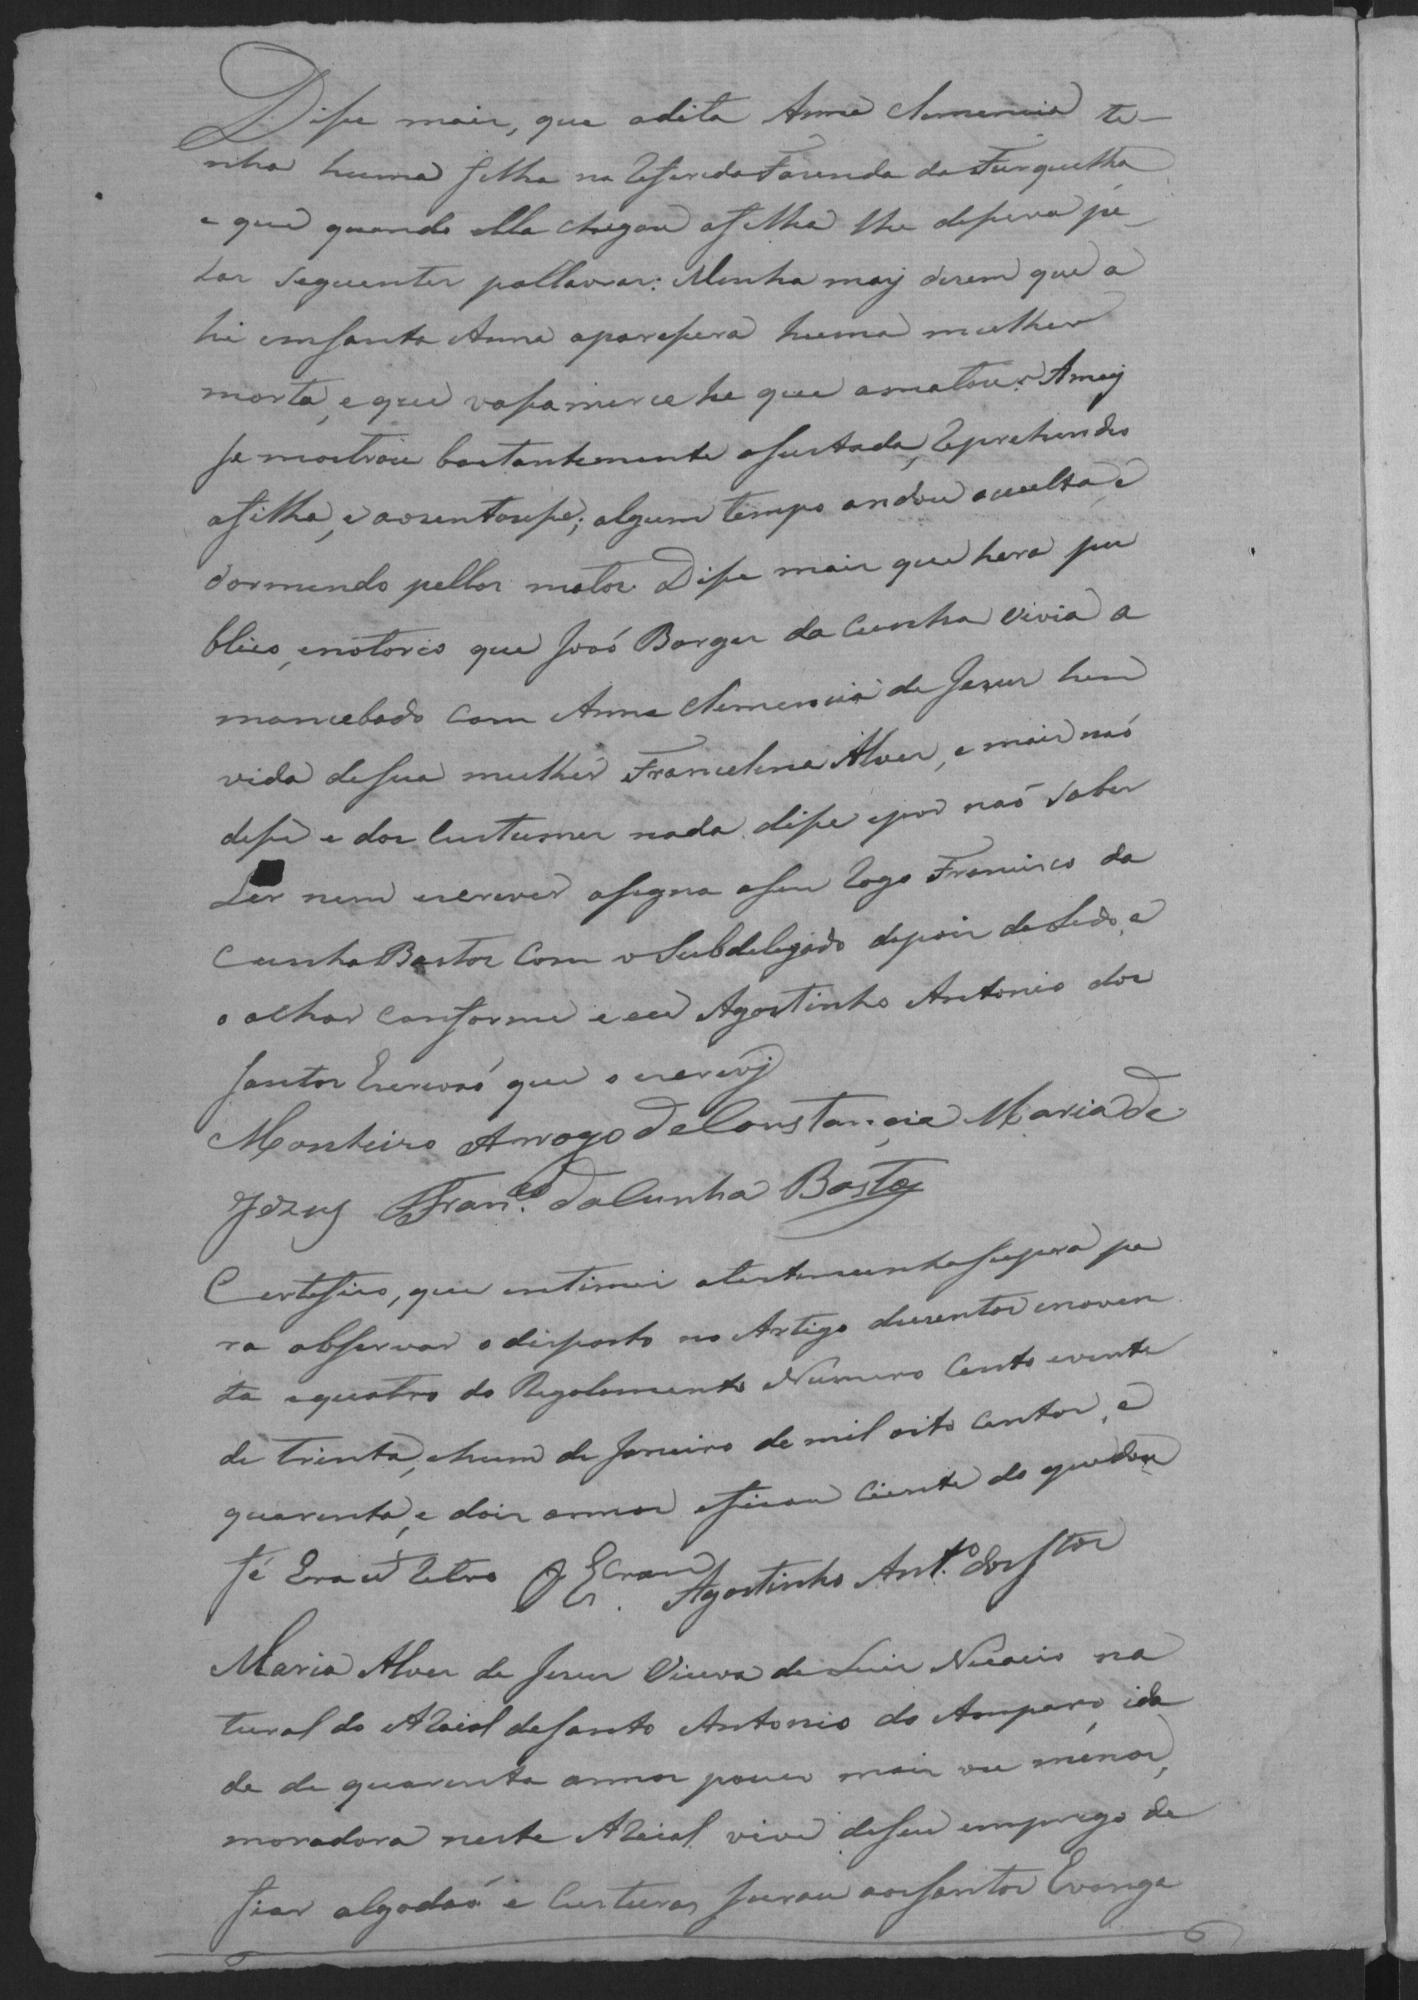 Disse mais, que adita Anna Clemencia ti-
nha huma filha na Referida Fazenda da Furquilha
e que quando ella chegou afilha lhe dissera pe-
las seguentes pallavras: Minha maÿ dizem que a
hi emfanta Anna aparessera huma mulher
morta, e que vossamerce he que amatou: Amaÿ
se mostrou bastantemente asustada, Reprehendeo
afilha, e aozentousse; algum tempo andou aculta, e
dormindo pellos matos. Disse mais que hera pu
blico, enotorio que Joaó Borges da Cunha vivia a
mancebado com Anna Clemencia de Jezus hem
vida desua mulher Francelina Alves, e mais naó
desse e dos Custumes nada disse epor naó saber
Ler nem escrever asigna aseu Rogo Francisco da
Cunha Bastos Com o Subdelegado depois de Lido, e
o achar conforme e eu Agostinho Antonio dos
Santos Escrivaó que o escrevÿ
Monteiro Arrogo de Constancia Maria de
Jezus Fran.co da Cunha Bastos
Certefico, que entimei atestemunha supra pa
ra observar o disposto no Artigo duzentos enoven
ta equatro do Regolamento Numero Cento evinte
de trinta, ehum de Janeiro de mil oito centos, e
quarenta, e dois annos eficou Ciente do que dou
fé Era ut Retro O Escram Agostinho Ant.o dos Stos
Maria Alves de Jesus Viuva de Luis Nicacio na
tural do ARaial de Santo Antonio do Amparo, ida
de de quarenta annos pouco mais ou menos,
moradora neste ARaial vive deseu emprego de
fiar algodaó e Custuras Jurou aos Santos Evange